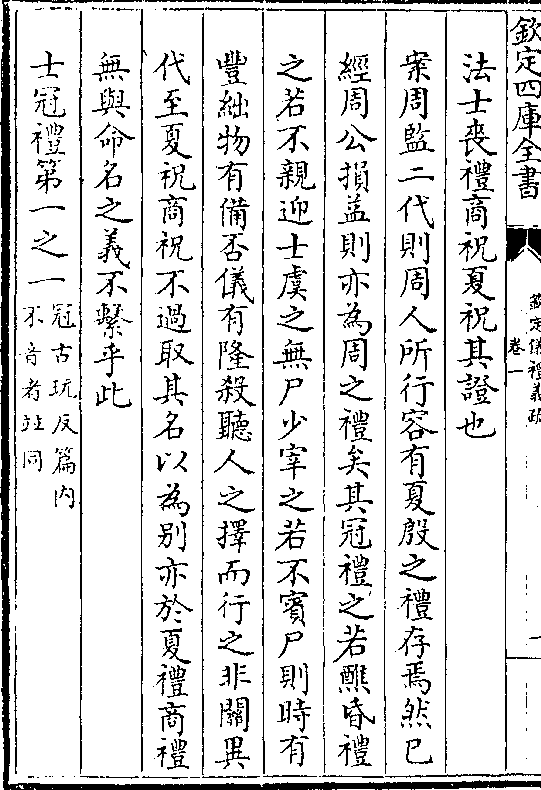 欽定四庫全書
欽定儀禮義疏
卷一
法士喪禮商祝夏祝其證也
案周監二代則周人所行容有夏殷之禮存焉然已
經周公損益則亦為周之禮矣其冠禮之若醮昏禮
之若不親迎士虞之無尸少宰之若不賓尸則時有
豐絀物有備否儀有隆殺聽人之擇而行之非關異
代至夏祝商祝不過取其名以為别亦於夏禮商禮
無與命名之義不繫乎此
士冠禮第一之一冠古玩反篇内
不音者竝同